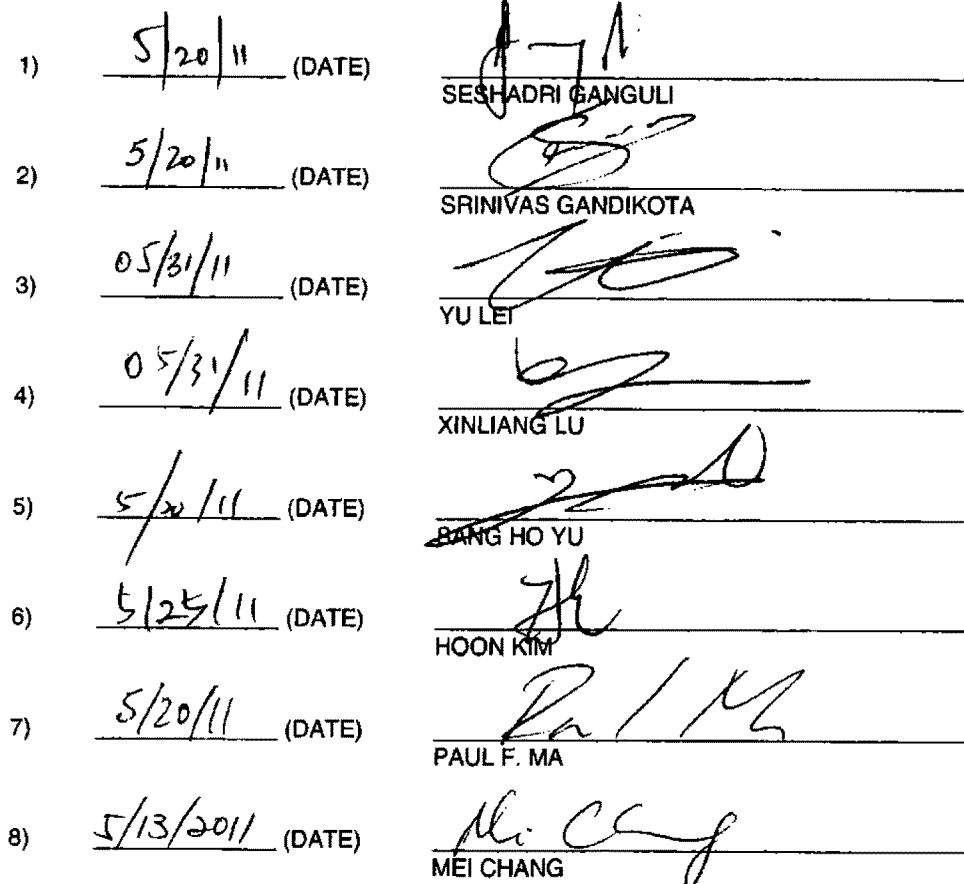 1) 5/20/11 (DATE)
SESHADRI GANGULI
2) 5/20/11 (DATE)
SRINIVAS GANDIKOTA
3) 05/31/11 (DATE)
YU LEI
4) 05/31/11 (DATE)
XINLIANG LU
5) 5/20/11 (DATE)
SANG HO YU
6) 5/25/11 (DATE)
HOON KIM
7) 5/20/11 (DATE) Paul Ma
PAUL F. MA
8) 5/13/2011 (DATE) Mei Chang
MEI CHANG